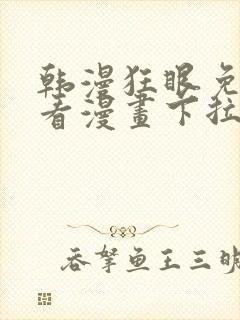 韩漫狂眼免
看漫畫下拉
吞拏鱼王三明